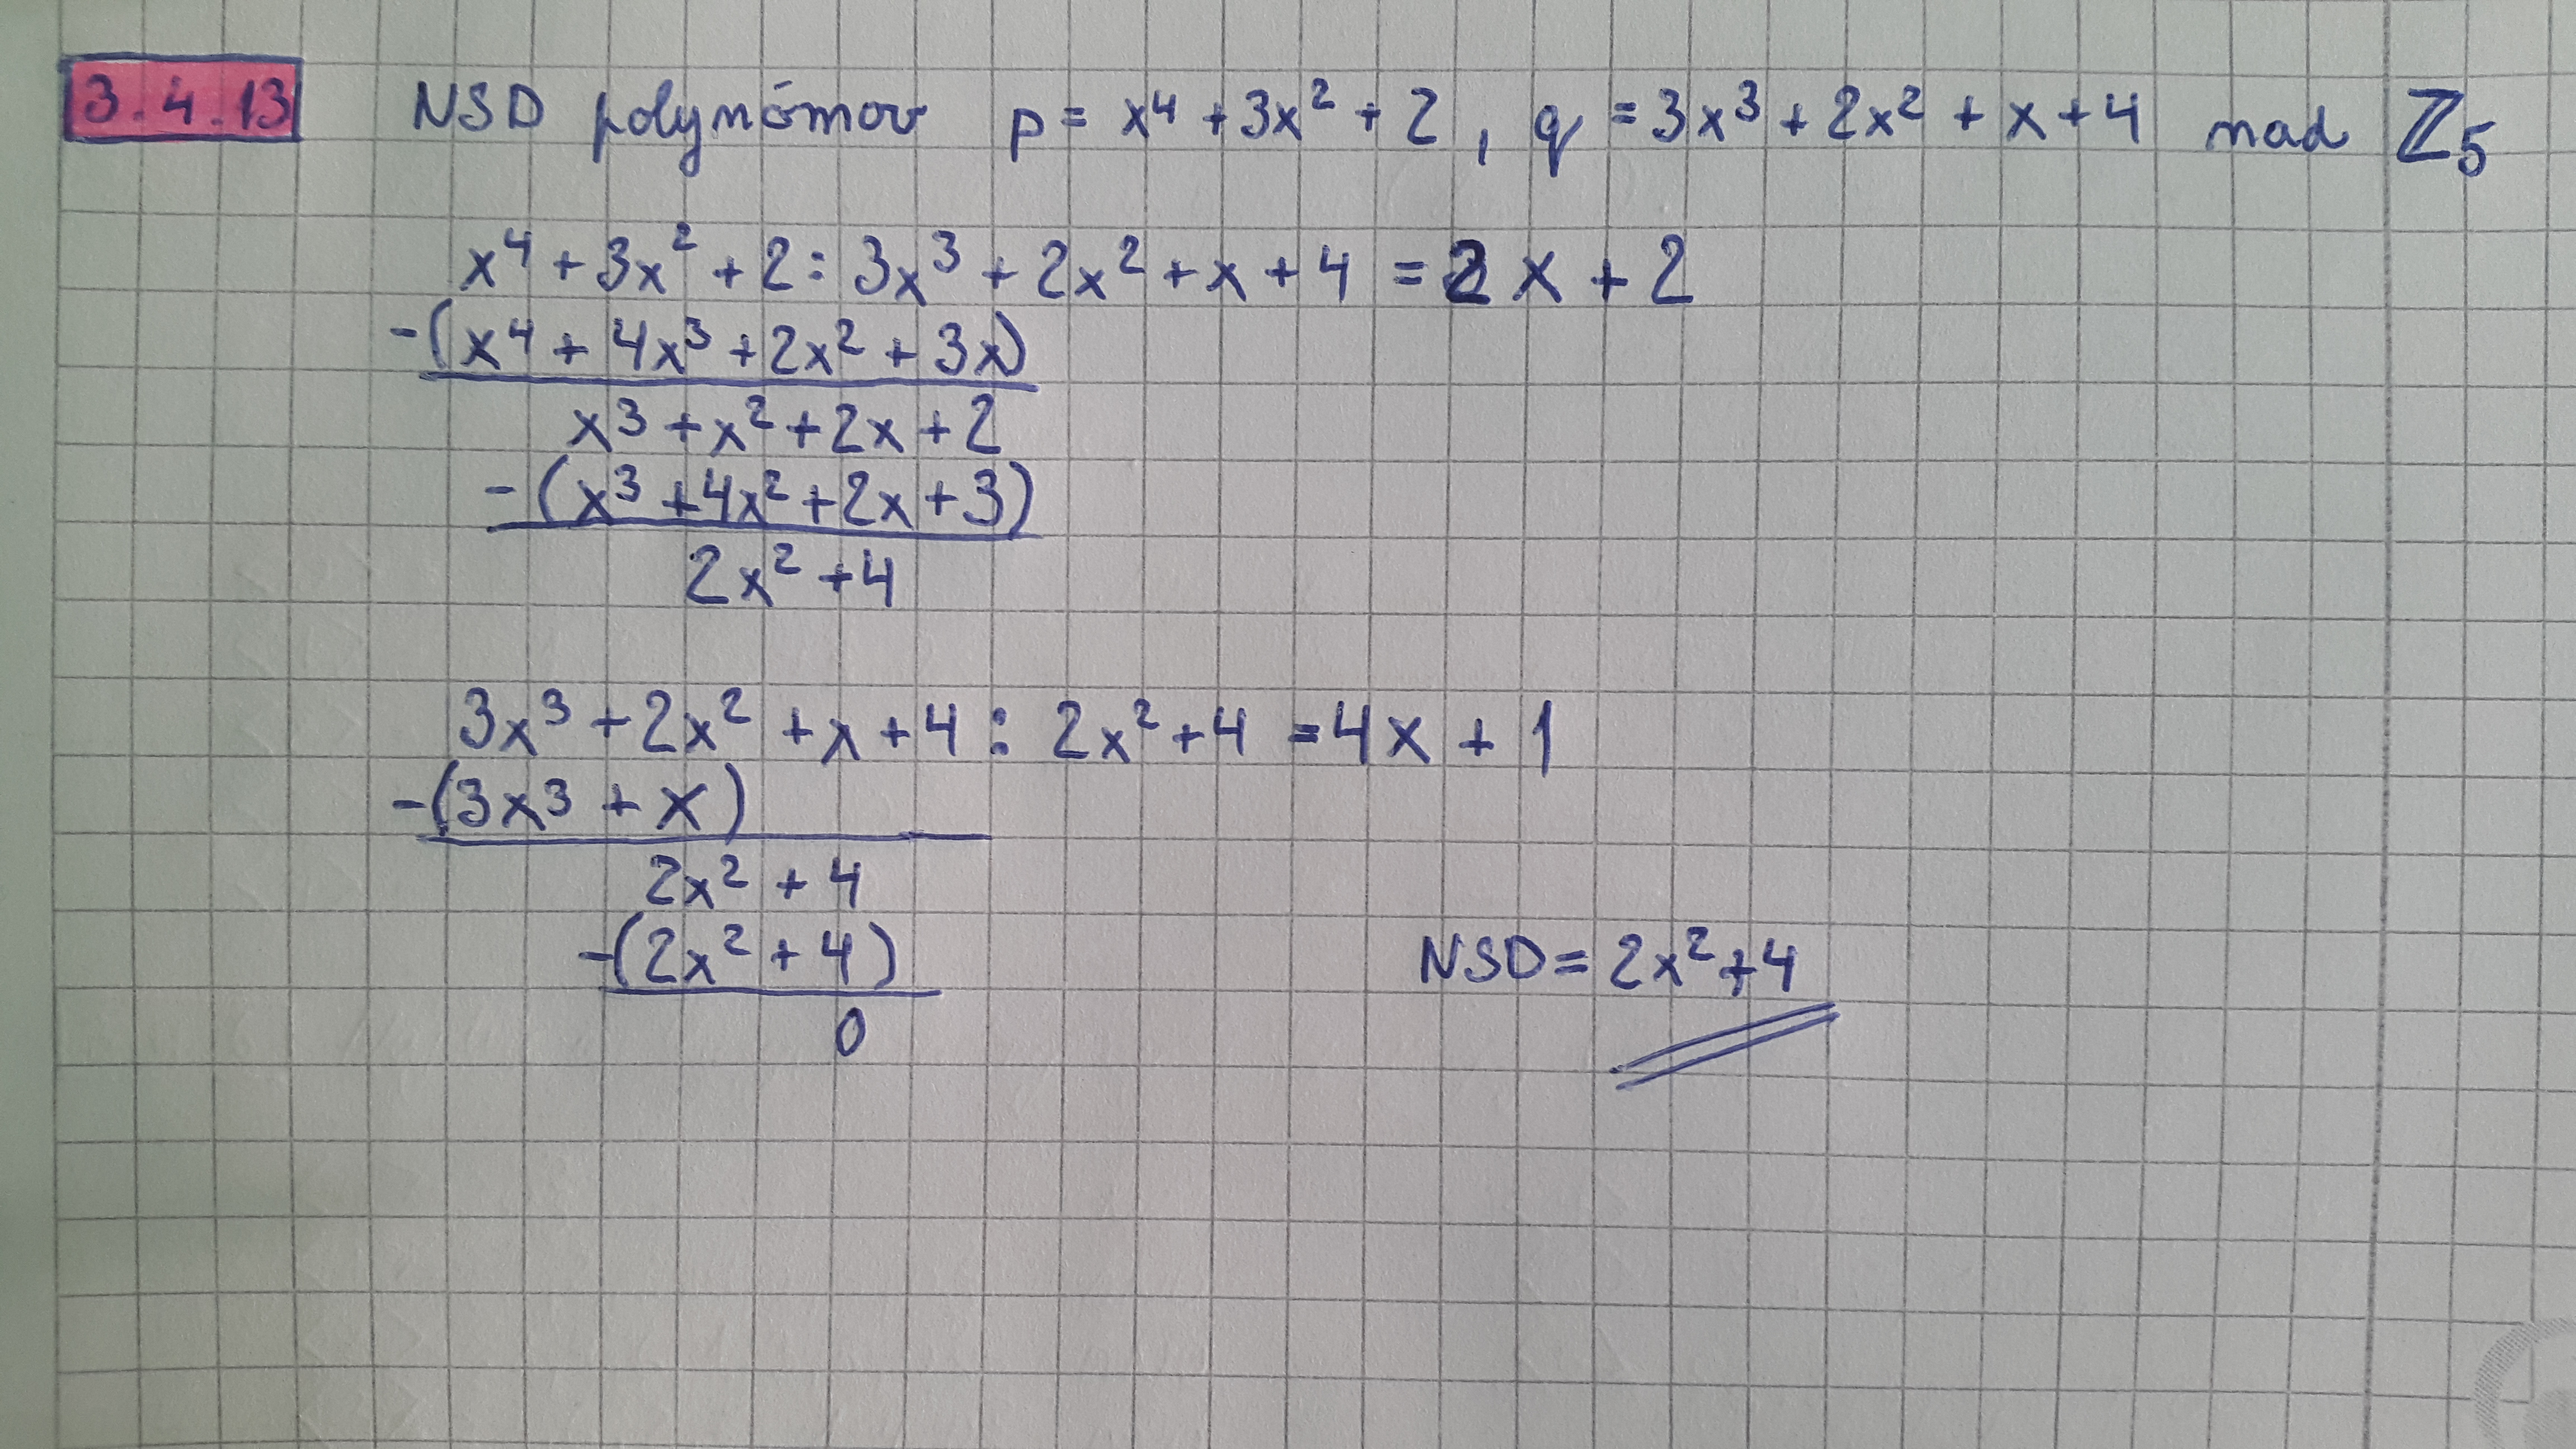 3.4.13 NSD polynómov p = x⁴ + 3x² + 2, q = 3x³ + 2x² + x + 4 nad ℤ₅
x⁴ + 3x² + 2 : 3x³ + 2x² + x + 4 = 2x + 2
-(x⁴ + 4x³ + 2x² + 3x)
x³ + x² + 2x + 2
-(x³ + 4x² + 2x + 3)
2x² + 4
3x³ + 2x² + x + 4 : 2x² + 4 = 4x + 1
-(3x³ + x)
2x² + 4
-(2x² + 4)
0
NSD = 2x² + 4